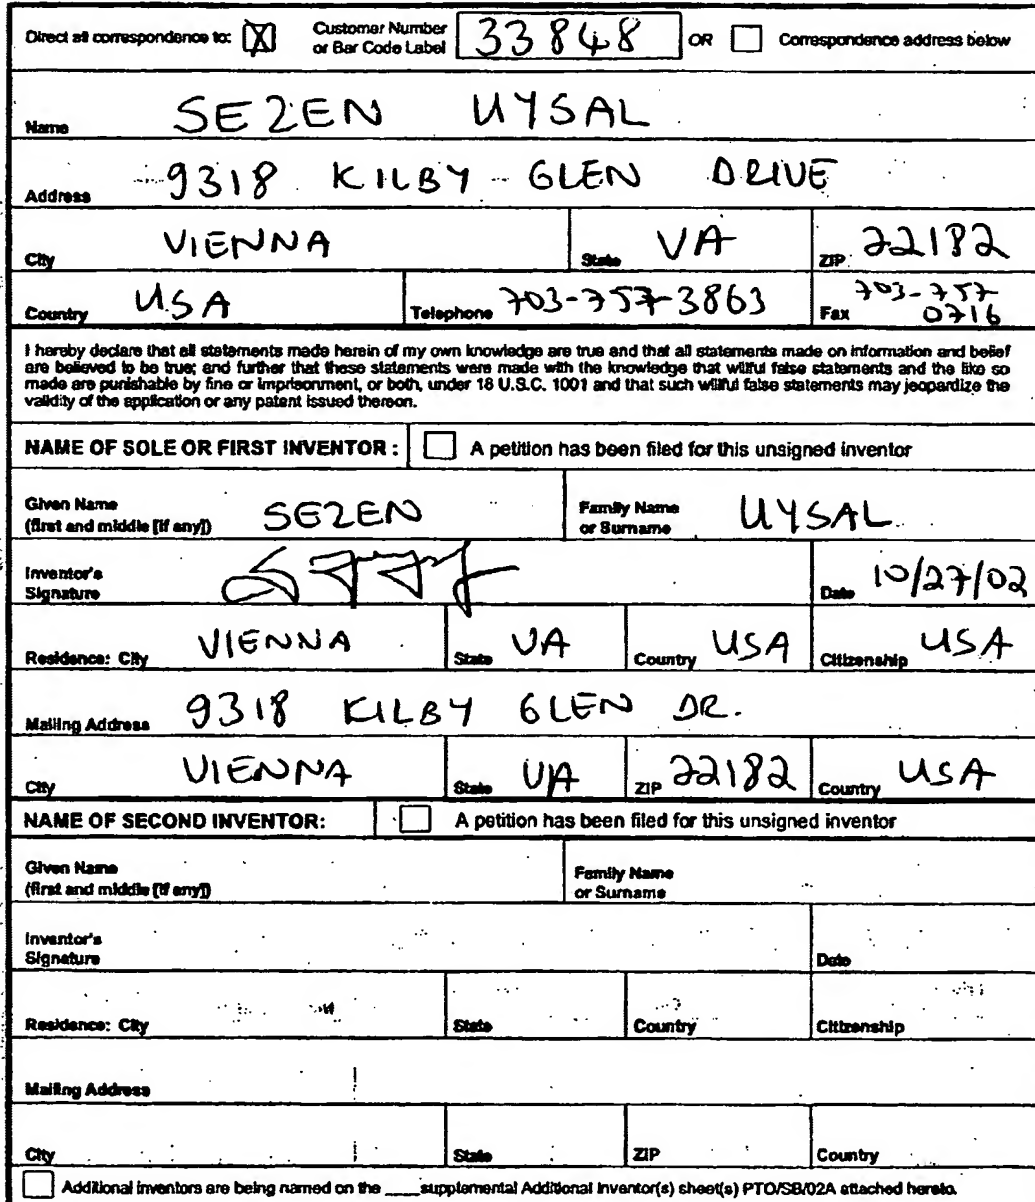 Direct all correspondence to: [X] Customer Number or Bar Code Label 33848 OR Correspondence address below
Name SEZEN UYSAL
Address 9318 KILBY GLEN DRIVE
City VIENNA State VA ZIP 22182
Country USA Telephone 703-757-3863 Fax 703-757-0716
I hereby declare that all statements made herein of my own knowledge are true and that all statements made on information and belief
are believed to be true; and further that these statements were made with the knowledge that willful false statements and the like so
made are punishable by fine or imprisonment, or both, under 18 U.S.C. 1001 and that such willful false statements may jeopardize the
validity of the application or any patent issued thereon.
NAME OF SOLE OR FIRST INVENTOR : A petition has been filed for this unsigned inventor
Given Name (first and middle [if any]) SEZEN Family Name or Surname UYSAL
Inventor's Signature Date 10/27/02
Residence: City VIENNA State VA Country USA Citizenship USA
Mailing Address 9318 KILBY GLEN DR.
City VIENNA State VA ZIP 22182 Country USA
NAME OF SECOND INVENTOR: A petition has been filed for this unsigned inventor
Given Name (first and middle [if any]) Family Name or Surname
Inventor's Signature Date
Residence: City State Country Citizenship
Mailing Address
City State ZIP Country
Additional inventors are being named on the ____supplemental Additional Inventor(s) sheet(s) PTO/SB/02A attached hereto.